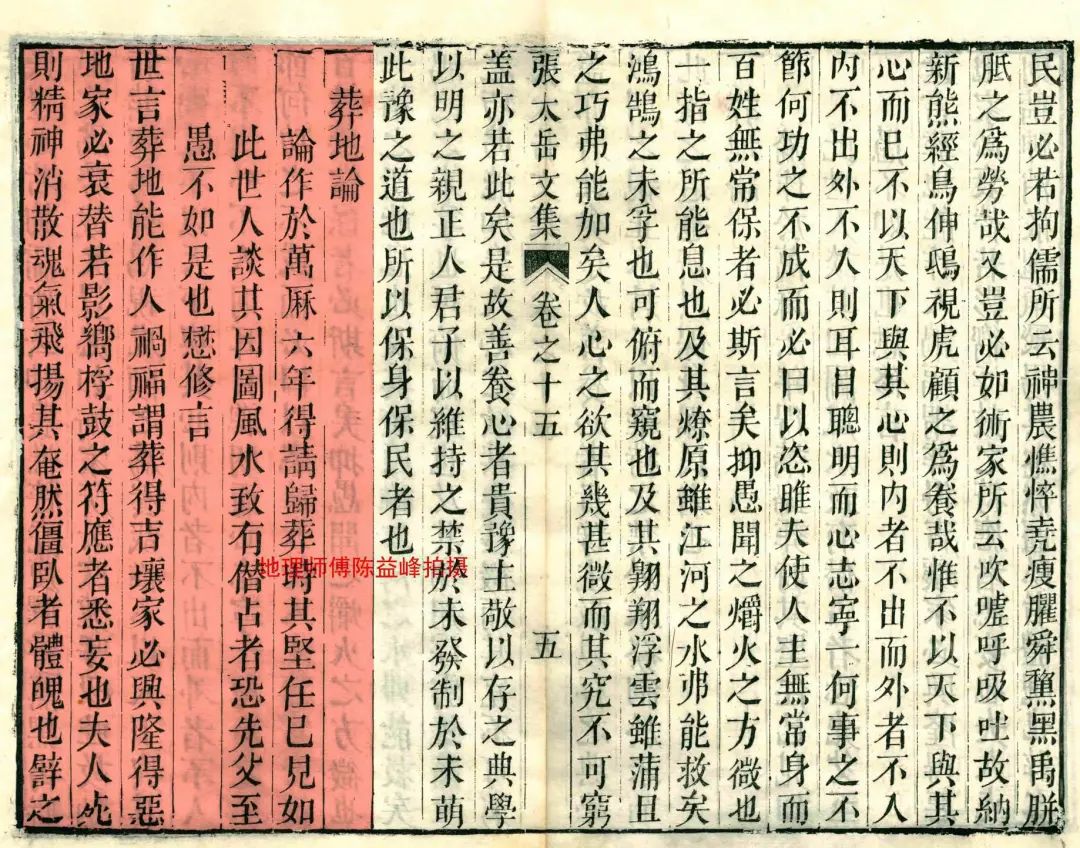 民豈必若拘儒所云神農憔悴堯瘦臞舜黧黑禹胼
胝之爲勞哉又豈必如術家所云吹噓呼吸吐故納
新熊經鳥伸鴟視虎顧之爲養哉惟不以天下與其
心而巳不以天下與其心則内者不出而外者不入
内不出外不入則耳目聰明而心志寧一何事之不
節何功之不成而必曰以恣睢夫使人主無常身而
百姓無常保者必斯言矣抑愚聞之爝火之方微也
一指之所能息也及其燎原雖江河之水弗能救矣
鴻鵠之未孚也可俯而窺也及其翺翔浮雲雖蒲且
之巧弗能加矣人心之欲其幾甚微而其究不可窮
張太岳文集 卷之十五 五
盖亦若此矣是故善養心者貴豫主敬以存之典學
以明之親正人君子以維持之禁於未發制於未萌
此豫之道也所以保身保民者也
葬地論
論作於萬厤六年得請歸葬時其堅任巳見如
此世人談其因圖風水致有僭占者恐先父至
愚不如是也懋修言
世言葬地能作人禍福謂葬得吉壤家必興隆得惡
地家必衰替若影嚮桴鼓之符應者悉妄也夫人死
則精神消散魂氣飛揚其奄然僵臥者體魄也譬之
地理师傅陈益峰拍摄